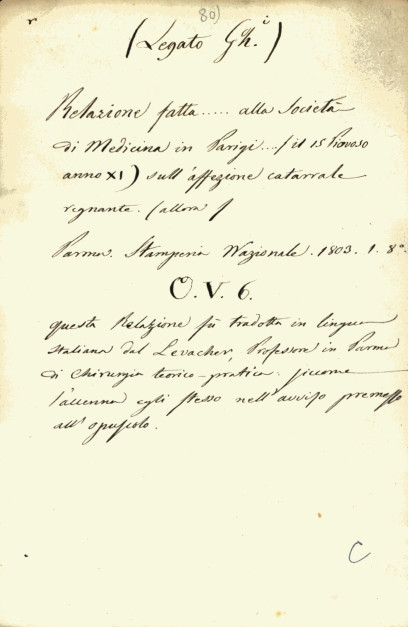 80)
(Legato Gh.i)
Relazione fatta..... alla Società
di Medicina in Parigi...(il 15 Piovoso
anno XI) sull'affezione catarrale
regnante. (allora)
Parma. Stamperia Nazionale. 1803. 1. 8°.
O. V. 6.
questa Relazione fù tradotta in lingua
italiana dal Levacher, Professore in Parma
di Chirurgia teorico-pratica. siccome
l'accenna egli stesso nell'avviso premesso
all'opuscolo.
C